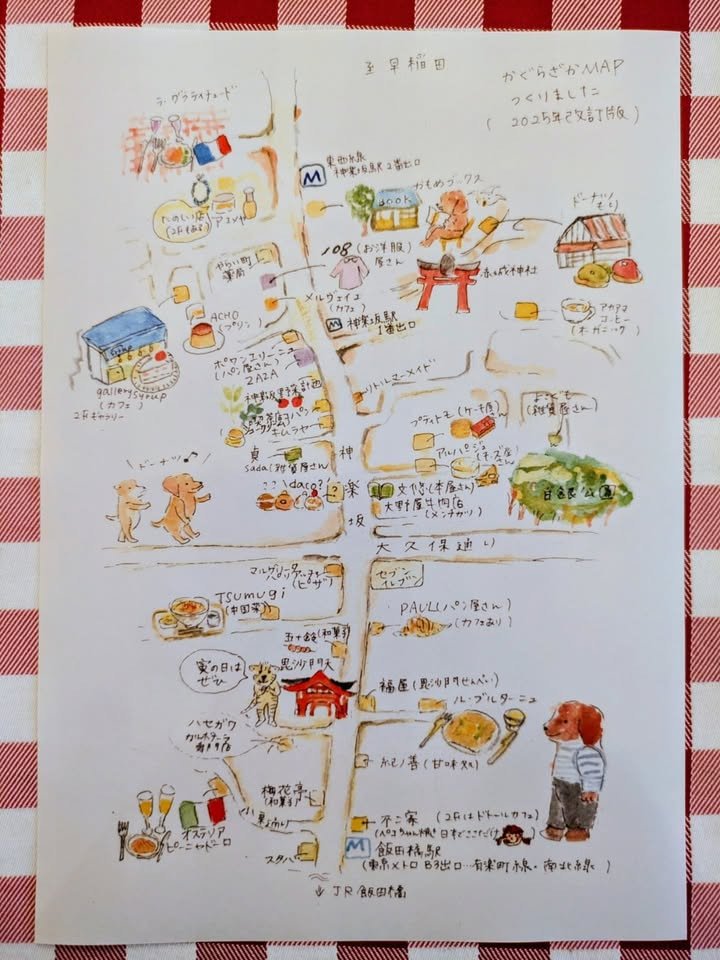 至 早稲田
かぐらざかMAP
つくりました
(2025年改訂版)
ラ・ヴァライチュード
東西線
神楽坂駅 2番出口
M
かもめブックス
BOOK
ドーナツもり
たのしい店
(2Fもある)
アユメヤ
108 (お洋服)
屋さん
やらい町
薬局
赤城神社
メルヴェイユ
(カフェ)
アカグマ
コーヒー
(オーガニック)
ACHO
(プリン)
M 神楽坂駅
1番出口
gallery Syrup
(カフェ)
2Fギャラリー
(パン屋さん)
ZAZA
リトルマーメイド
神楽坂野菜計画
プティトモ (ケーキ屋さん)
(雑貨屋さん)
キムラヤ
アルパージュ
(チーズ屋さん)
貞
sada (雑貨屋さん)
ドーナツ♪
ココ\dacō?!
文悠 (本屋さん)
大野屋牛肉店
(メンチカツ)
白銀公園
神楽坂
大久保通り
マルゲリータ
(ピザ)
セブン
イレブン
Tsumugi
(中国菜)
PAUL (パン屋さん)
(カフェあり)
五十鈴 (和菓子)
寅の日は
ぜひ
毘沙門天
福屋 (毘沙門せんべい)
ル・ブルターニュ
ハセガワ
紀の善 (甘味処)
梅花亭
(和菓子)
不二家 (2Fはドトールカフェ)
(ペコちゃん焼 日本でここだけ)
オステリア
スタバ
M 飯田橋駅
(東京メトロ B3出口…有楽町線・南北線)
↓ JR飯田橋